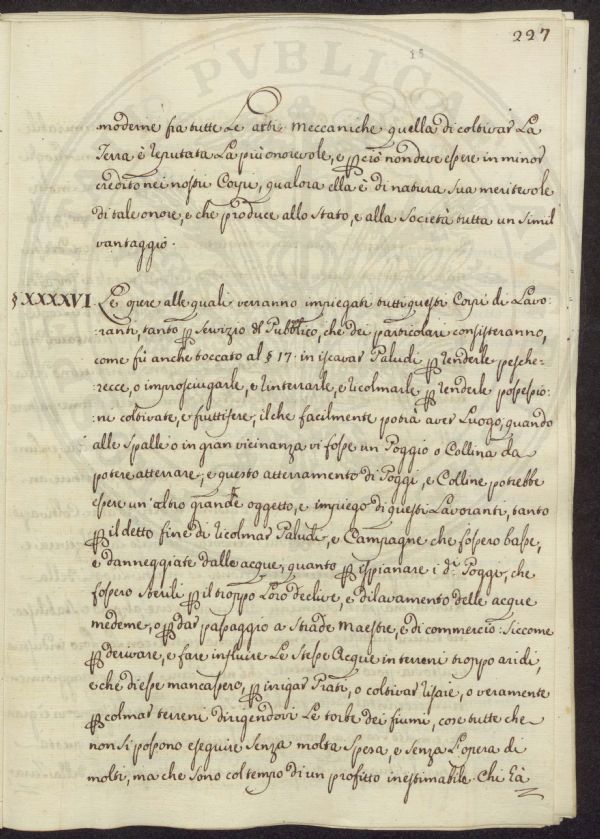 227
15
PVBLICA
moderne fra tutte Le arti Meccaniche quella di coltivar La
Terra è reputata La più onorevole, e p ciò non deve essere in minor
credito nei nostri Corpi, qualora ella è di natura sua meritevole
di tale onore, e che produce allo Stato, e alla Società tutta un simil
vantaggio.
§XXXXVI Le opere alle quali verranno impiegati tutti questi Corpi di Lavo:
:ranti, tanto p Servizio del Pubblico, che dei particolari consisteranno,
come fù anche toccato al § 17. in iscavar Paludi p renderle pesche:
:recce, o improsciugarle, e rinterrarle, e ricolmarle p renderle possessio:
:ni coltivate, e fruttifere, il che facilmente potrà aver Luogo, quando
alle spalle o in gran vicinanza vi fosse un Poggio o Collina da
potere atterrare, e questo atterramento di Poggi, e Colline potrebbe
essere un' altro grande oggetto, e impiego di questi Lavoranti, tanto
p il detto fine di ricolmar Paludi, e Campagne che fossero basse,
e danneggiate dalle acque, quanto p ispianare i d.i Poggi, che
fossero sterili p il troppo Loro declive, e dilavamento delle acque
medeme, o p dar passaggio a Strade Maestre, e di commercio: Siccome
p derivare, e fare influire Le Stesse Acque in terreni troppo aridi,
e che di esse mancassero, p irrigar Prati, o coltivar risaie, o veramente
p colmar terreni dirigendovi Le torbe dei fiumi, cose tutte che
non si possono eseguire senza molta spesa, e senza L'opera di
molti, ma che sono col tempo di un profitto inestimabile. Chi Là